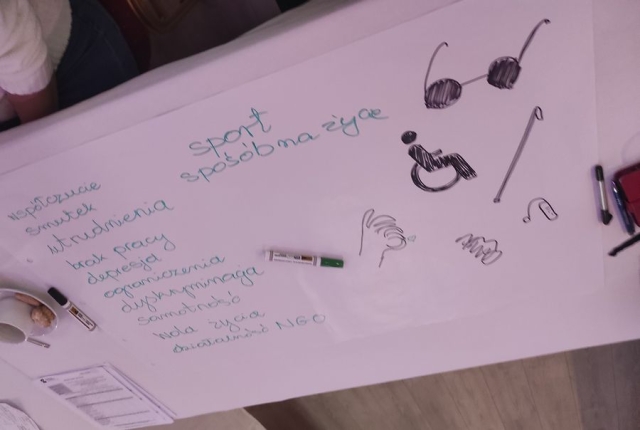 sport
sposób na życie
współczucie
smutek
utrudnienia
brak pracy
depresja
ograniczenia
dyskryminacja
samotność
wola życia
działalność NGO